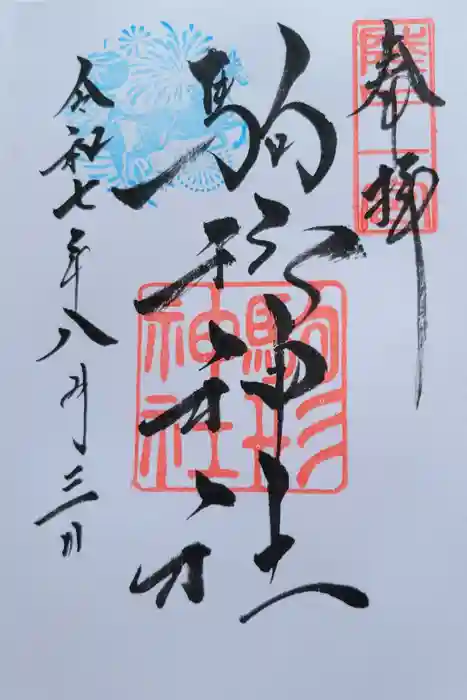 奉拝
駒形神社
駒形神社
令和七年八月三日